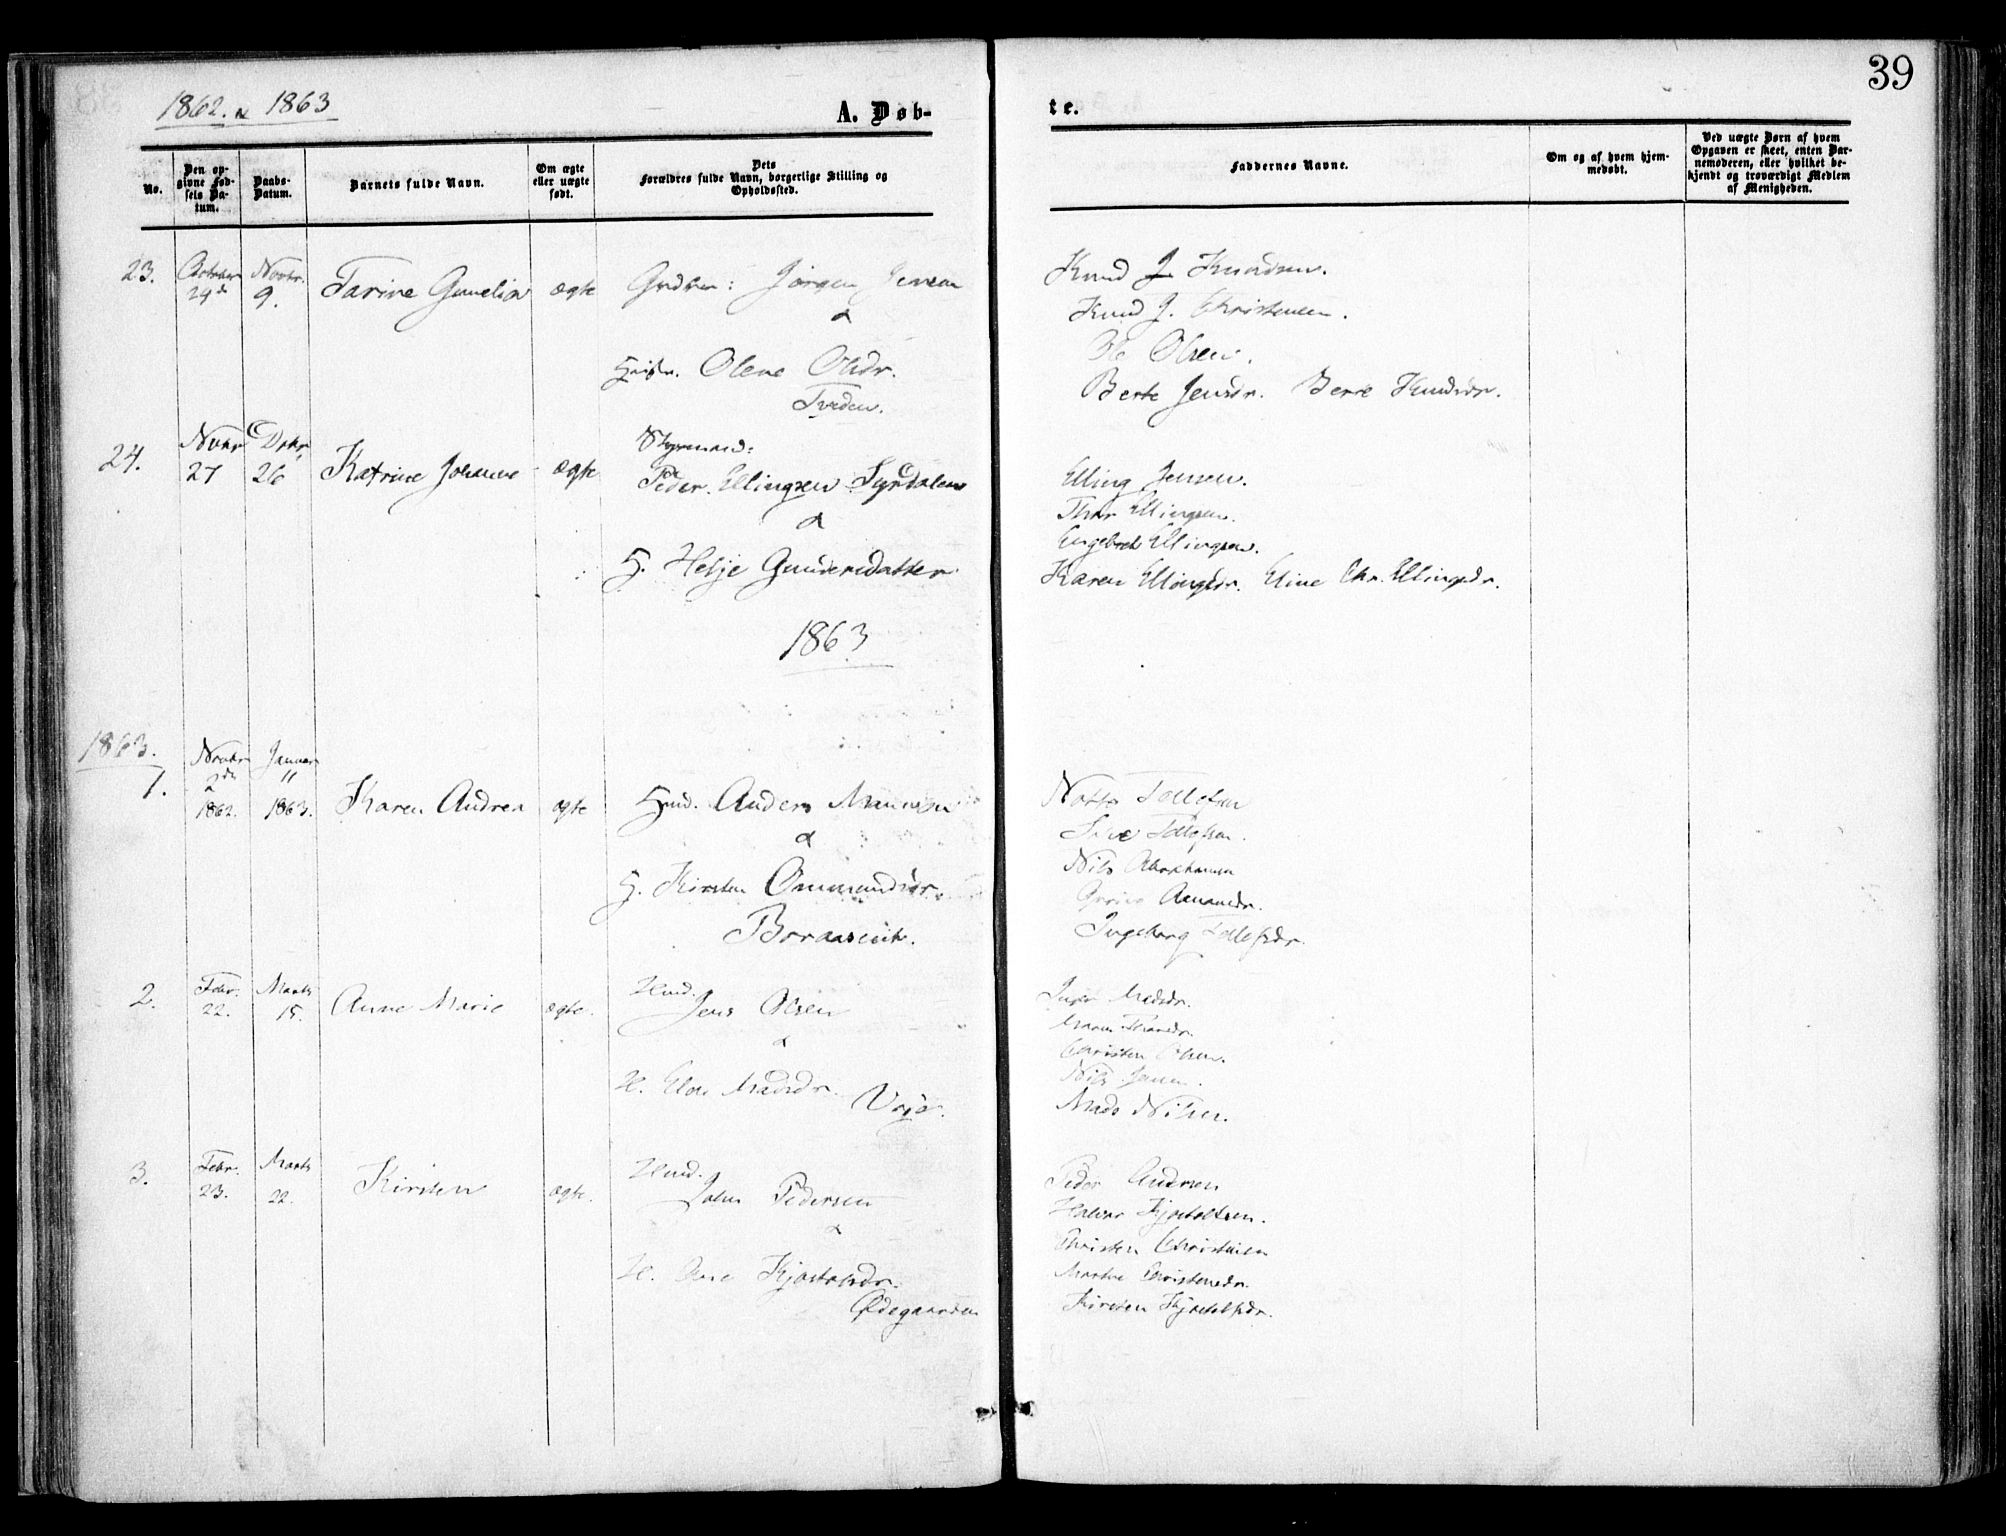 39
1862. & 1863
A. Døb-
te.
No.
Den op-
givne Fød-
sels Da-
tum.
Daabs-
Datum.
Barnets fulde Navn.
Om ægte
eller uægte
født.
Dets
Forældres fulde Navn, borgerlige Stilling og
Opholdssted.
Faddernes Navne.
Om og af hvem hjem-
medøbt.
Ved uægte Børn af hvem
Opgaven er skeet, enten Bar-
nemoderen, eller hvilket be-
kjendt og troværdigt Medlem
af Menigheden.
23.
24de
Novbr.
9.
Tarine Gunelia
ægte
Jørgen Jensen
&
Olene Olsdr.
Tveden.
Knud J. Knudsen.
Knud J. Christensen.
Ole Olsen.
Berte Jensdr. Berte Knudsdr.
24.
Novbr
27
Dcbr
26
Katrine Johanne
ægte
Styrmand:
Peder Ellingsen Syrdalen
&
H. Helje Gundersdatter
Elling Jensen.
Thor Ellingsen.
Engebret Ellingsen.
Karen Ellingsdr. Eline Chr. Ellingsdr.
1863
1863.
1.
Novbr
2den
1862.
Januar
11
1863.
Karen Andrea
ægte
Hmd. Anders
&
H. Kirsten Ommundsdr.
Tollefsen
Tollefsen.
Nils Abrahamsen
Ingeborg Tollefsdr.
2.
Febr.
22.
Marts
15.
Anne Marie
ægte.
Hmd.
Jens Olsen
&
H. Madsdr.
Madsdr.
Christen Olsen.
Nils Jensen.
Mads Nilsen.
3.
Febr.
23.
Marts
22.
Kirsten
ægte.
Hmd.
John Pedersen
&
H. Kjøstolsdr.
Ødegaarden
Peder
Halvor Kjøstolsen.
Christen Christensen
Christensdr.
Kirsten Kjøstolsdr.